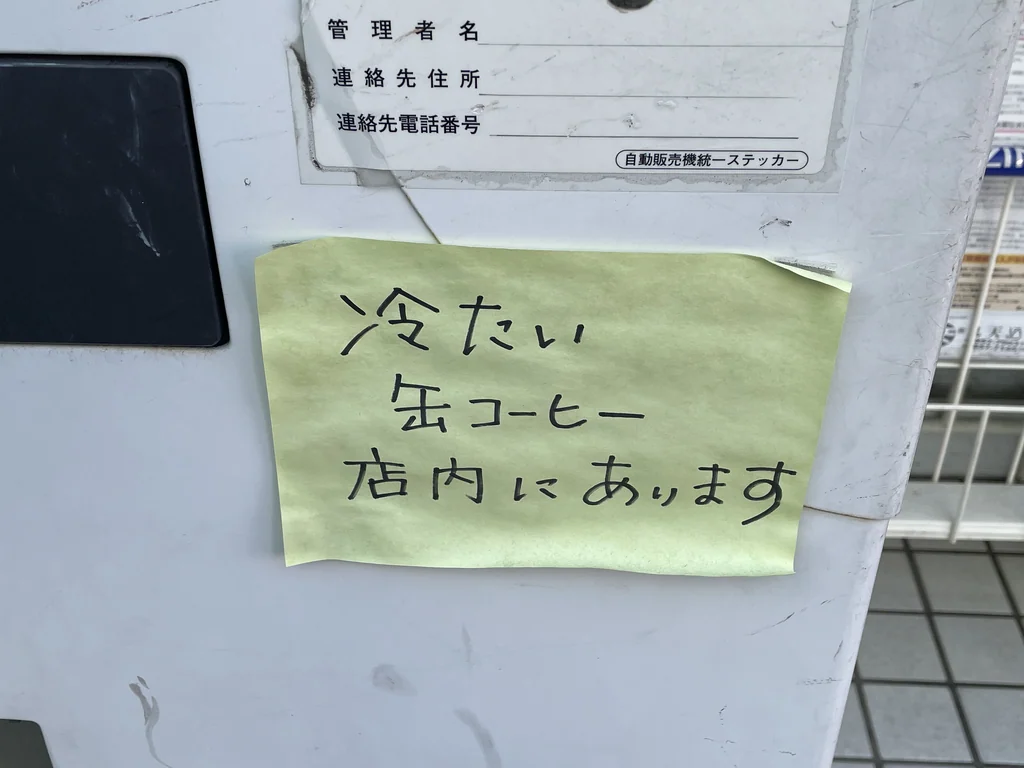 管理者名
連絡先住所
連絡先電話番号
自動販売機統一ステッカー
冷たい
缶コーヒー
店内にあります